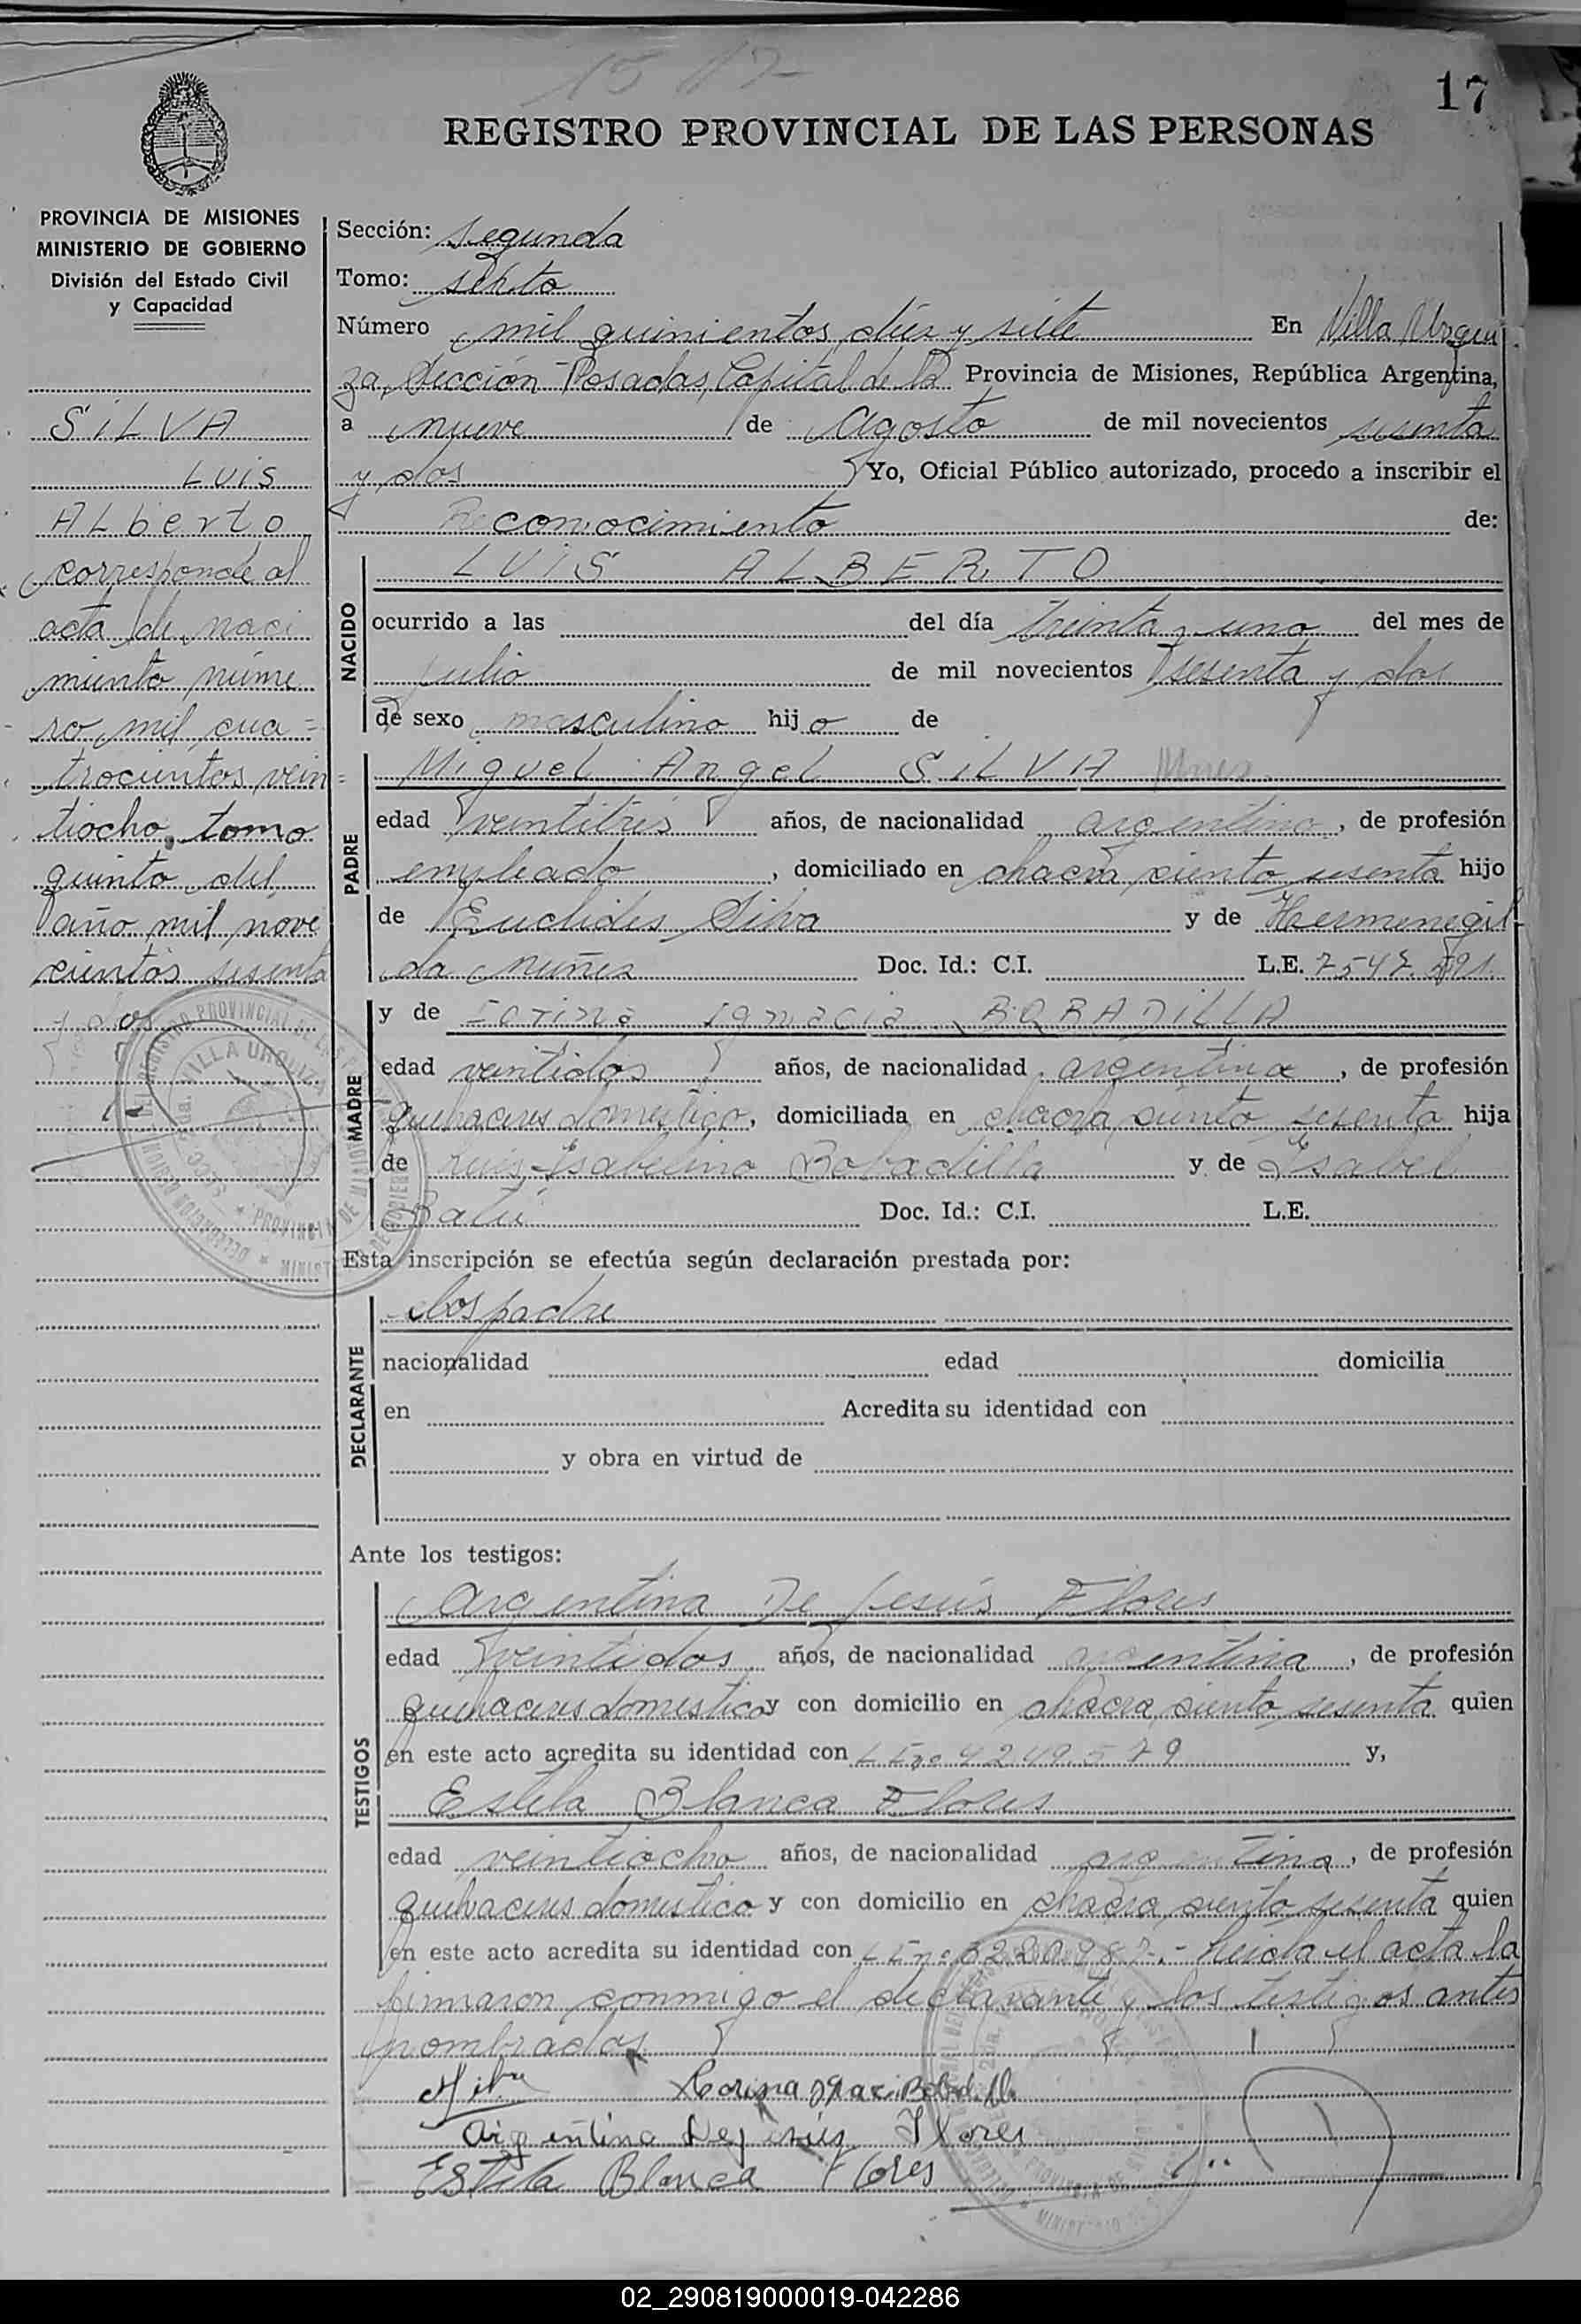 17
REGISTRO PROVINCIAL DE LAS PERSONAS
PROVINCIA DE MISIONES
MINISTERIO DE GOBIERNO
División del Estado Civil
y Capacidad
SILVA
LUIS
ALberto
corresponde al
acta de naci
miento núme
ro mil cua=
trocientos vein=
tiocho, tomo
quinto del
año mil nove
cientos sesenta
y dos
Sección: segunda
Tomo: sexto
Número mil quinientos diez y siete En Villa Urqui
za, Sección Posadas, Capital de la Provincia de Misiones, República Argentina,
a nueve de Agosto de mil novecientos sesenta
y dos Yo, Oficial Público autorizado, procedo a inscribir el
Reconocimiento de:
NACIDO
LUIS ALBERTO
ocurrido a las del día treinta y uno del mes de
julio de mil novecientos sesenta y dos
de sexo masculino hijo de
PADRE
Miguel Angel SILVA
edad veintitres años, de nacionalidad argentino, de profesión
empleado, domiciliado en chacra ciento sesenta hijo
de Euclides Silva y de Hermenegil
da Nuñez Doc. Id.: C.I. L.E. 7547.591
MADRE
y de Ignacia BOBADILLA
edad veintidos años, de nacionalidad argentina, de profesión
quehaceres domestico, domiciliada en chacra ciento sesenta hija
de Luis Esabelino Bobadilla y de Esabel
Batú Doc. Id.: C.I. L.E.
Esta inscripción se efectúa según declaración prestada por:
DECLARANTE
los padre
nacionalidad edad domicilia
en Acredita su identidad con
y obra en virtud de
Ante los testigos:
TESTIGOS
Argentina De Jesús Flores
edad veintidos años, de nacionalidad argentina, de profesión
quehaceres domestico y con domicilio en chacra ciento sesenta quien
en este acto acredita su identidad con L Eno 4249.579 y,
Estela Blanca Flores
edad veintiocho años, de nacionalidad argentina, de profesión
quehaceres domestico y con domicilio en chacra ciento sesenta quien
en este acto acredita su identidad con L Eno leida el acta la
firmaron conmigo el declarante y los testigos antes
nombrados
Argentina Dejesús Flores
Estela Blanca Flores
02_290819000019-042286